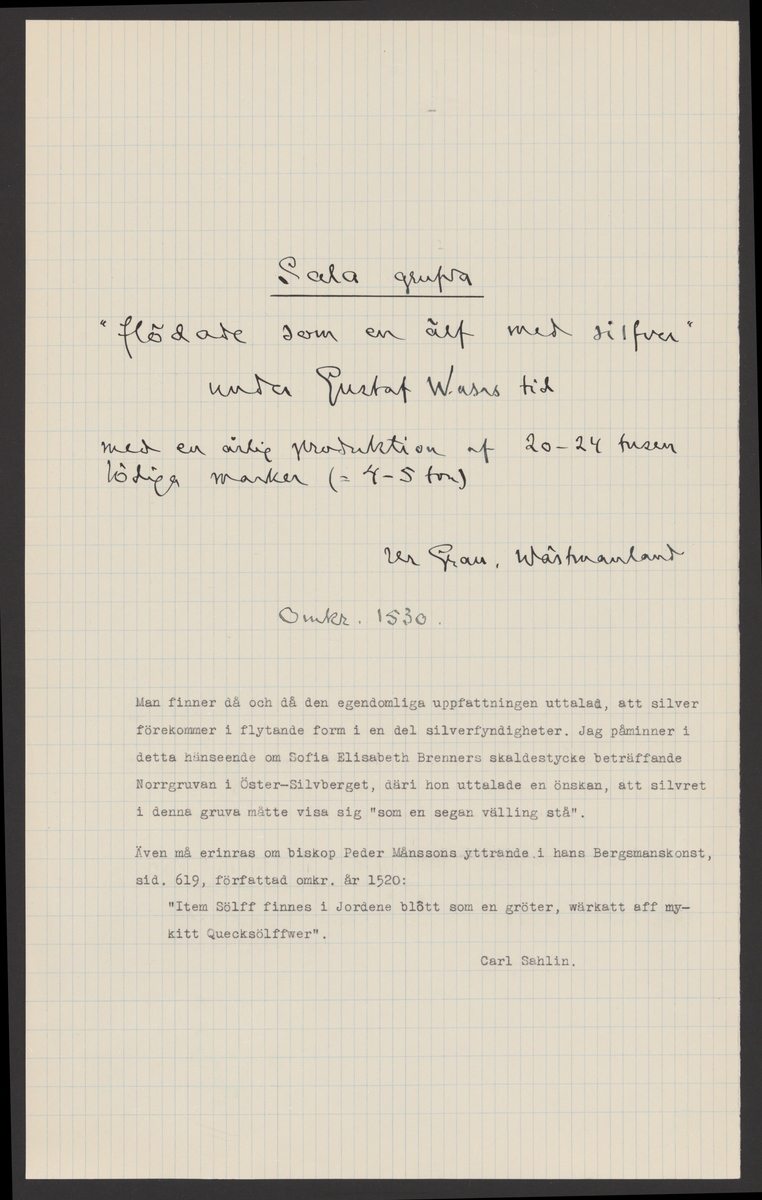 Sala grufva
"flödade som en älf med silfver"
under Gustaf Wasas tid
med en årlig produktion af 20-24 tusen
lödiga marker (= 4-5 ton)
Wästmanland
Omkr. 1530.
Man finner då och då den egendomliga uppfattningen uttalad, att silver
förekommer i flytande form i en del silverfyndigheter. Jag påminner i
detta hänseende om Sofia Elisabeth Brenners skaldestycke beträffande
Norrgruvan i Öster-Silvberget, däri hon uttalade en önskan, att silvret
i denna gruva måtte visa sig "som en segan välling stå".
Även må erinras om biskop Peder Månssons yttrande i hans Bergsmanskonst,
sid. 619, författad omkr. år 1520:
"Item Sölff finnes i Jordene blött som en gröter, wärkatt aff my-
kitt Quecksölffwer".
Carl Sahlin.